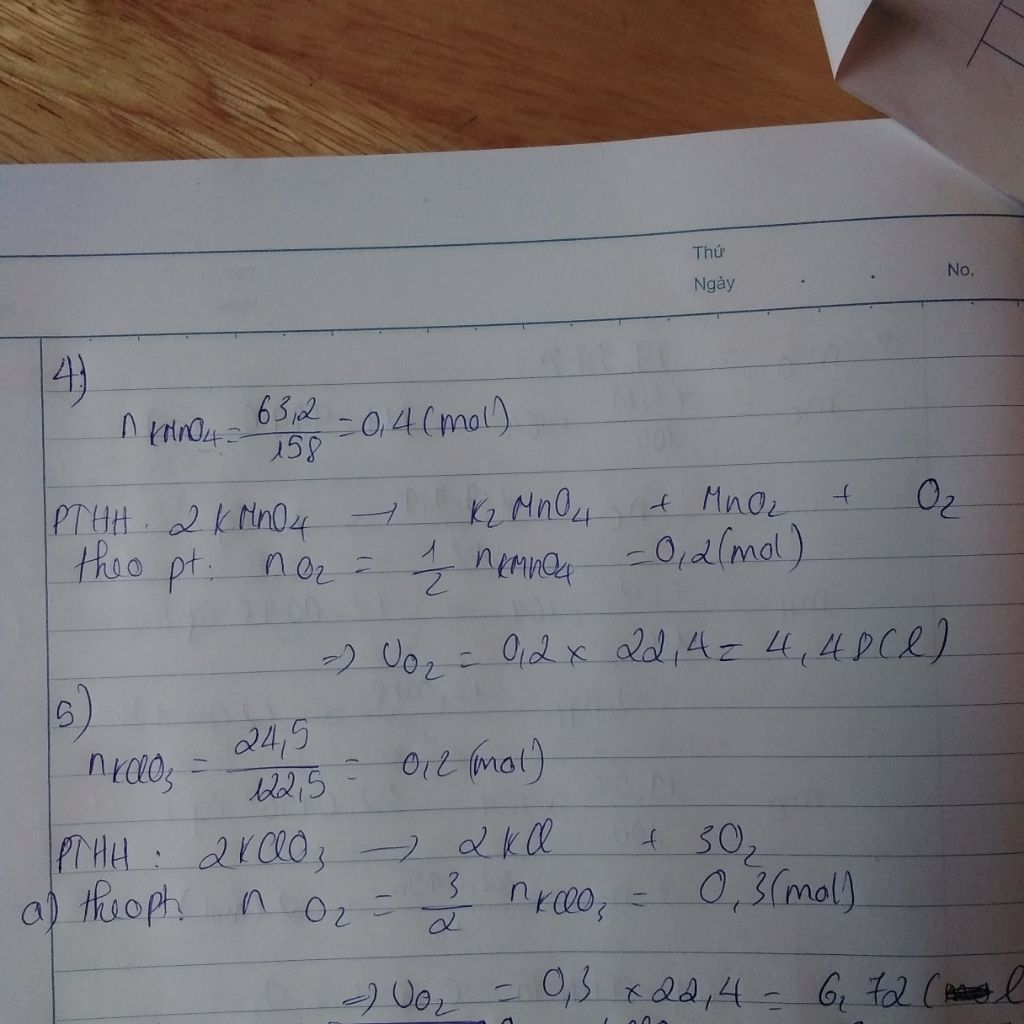 Thứ
Ngày . . No.
4)
n KMnO4 = 63,2/158 = 0,4 (mol)
PTHH. 2KMnO4 → K2MnO4 + MnO2 + O2
theo pt: nO2 = 1/2 nKMnO4 = 0,2 (mol)
=> VO2 = 0,2 x 22,4 = 4,48 (l)
5)
nKClO3 = 24,5/122,5 = 0,2 (mol)
PTHH: 2KClO3 → 2KCl + 3O2
a) theo pt: nO2 = 3/2 nKClO3 = 0,3 (mol)
=> VO2 = 0,3 x 22,4 = 6,72 (l